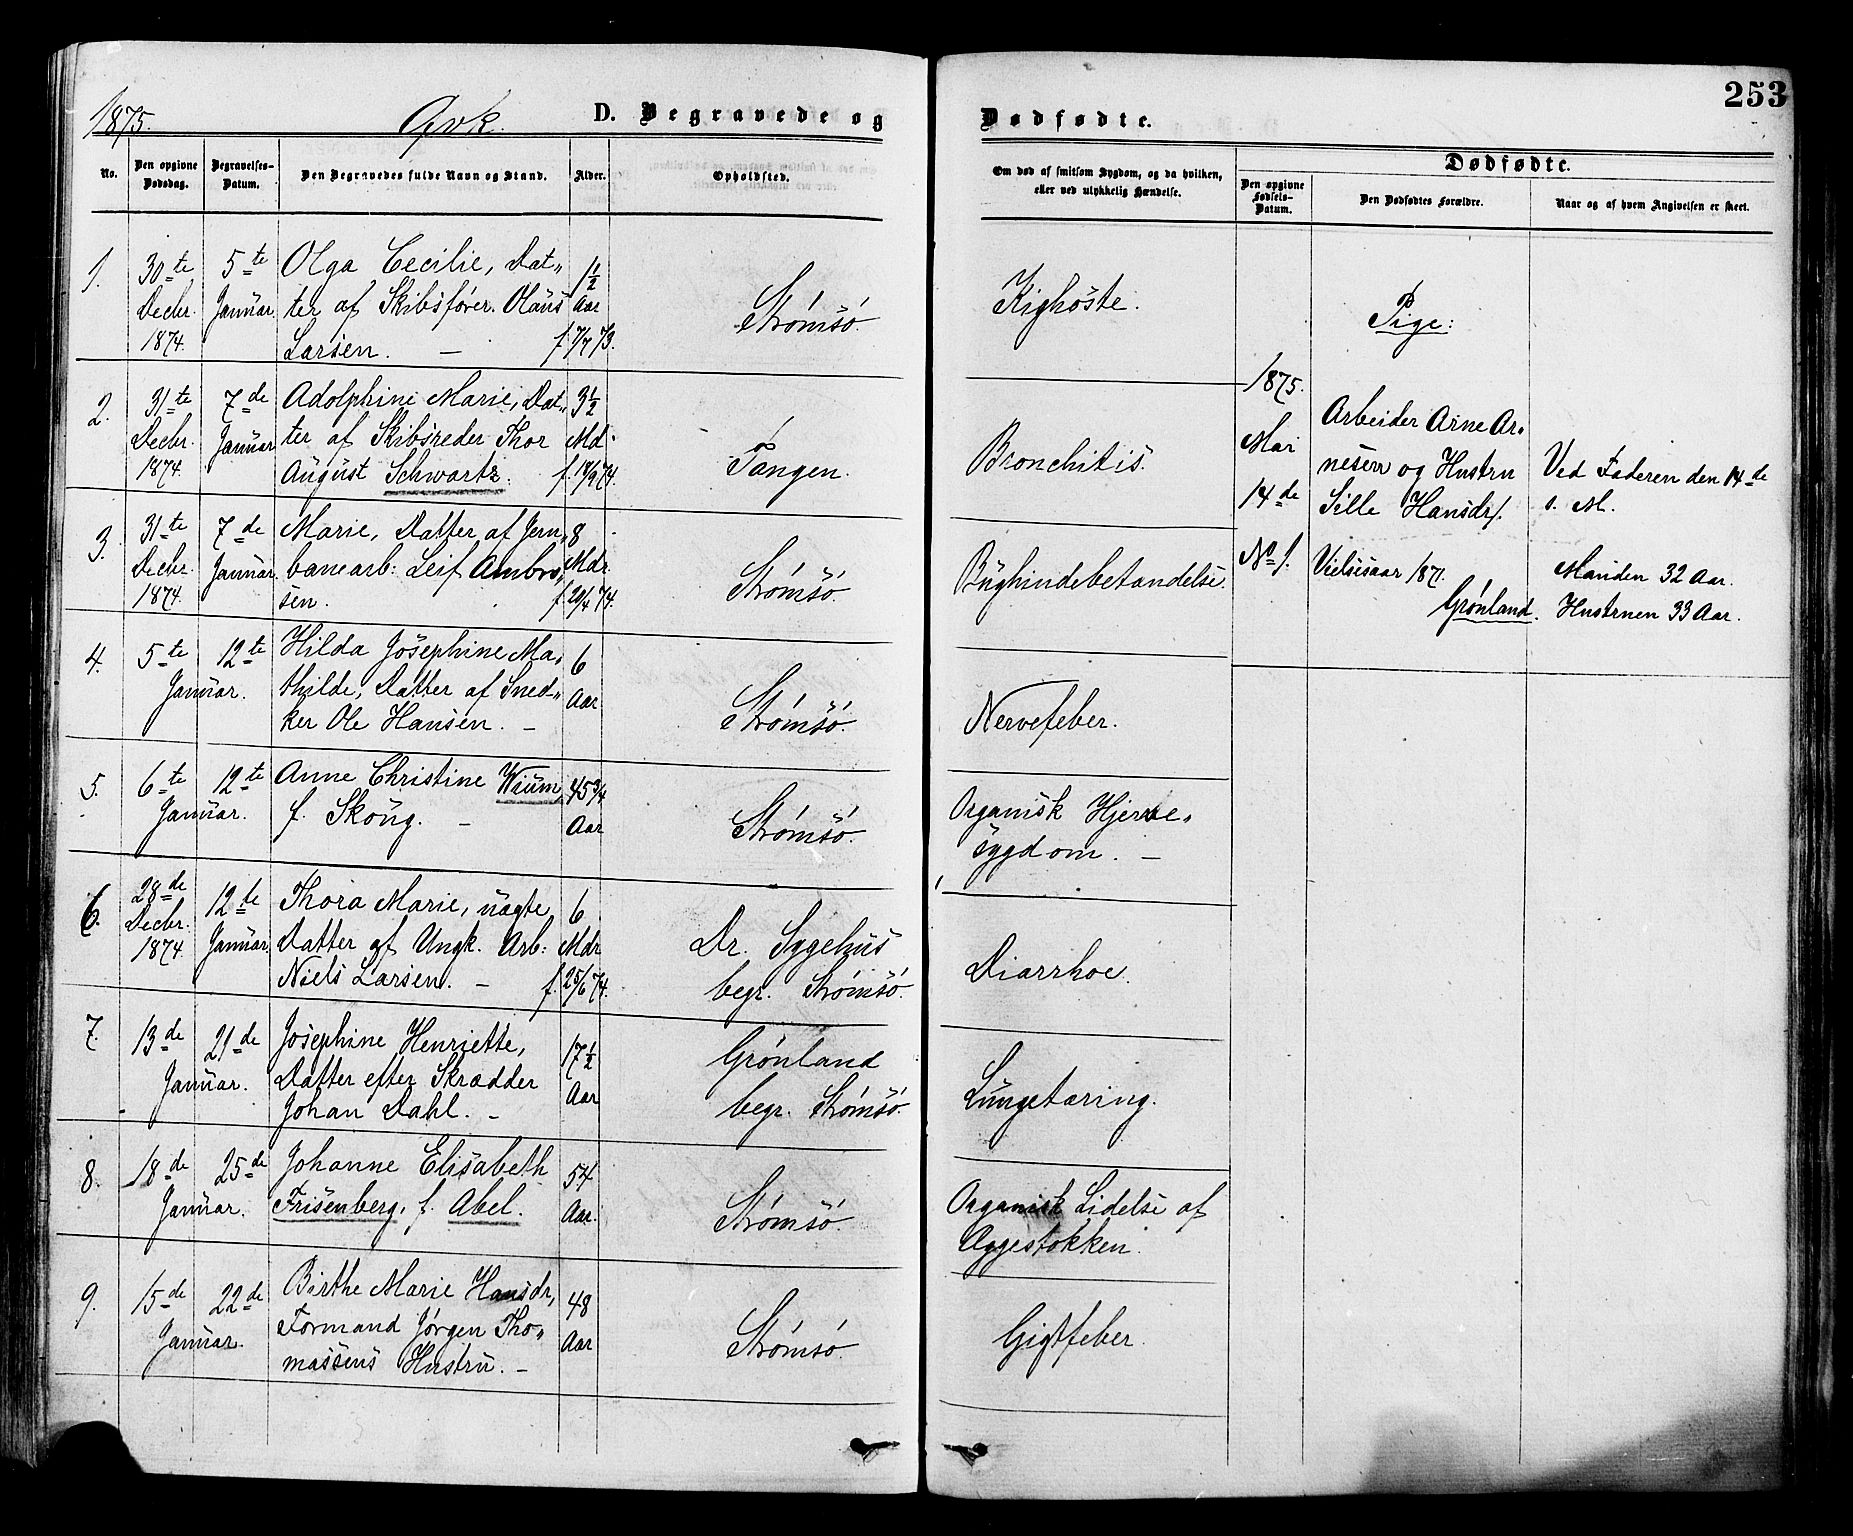 253
1875. Qvk. D. Begravede og Dødfødte.
No. Den opgivne Dødsdag. Begravelses-Datum. Den Begravedes fulde Navn og Stand. Alder. Opholdsted.
Om død af smitsom Sygdom, og da hvilken, eller ved ulykkelig Hændelse.
Dødfødte.
Den opgivne Fødsels-Datum. Den Dødfødtes Forældre. Naar og af hvem Angivelsen er skeet.
1. 30te 5te Olga Cecilie, Dat„ 1½
Decbr. Januar ter af Skibsfører Olaus Aar Strömsö. Kighoste.
1874. Larsen. — f. 7/7 73.
2. 31te 7de Adolphine Marie, Dat„ 3½
Decbr. Januar ter af Skibsreder Thor Md. Tangen. Bronchitis.
1874. August Schwartz. f. 18/9 74.
3. 31te 7de Marie, Datter af Jern„ 8
Decbr. Januar. banearb: Leif Ambro„ Mdr. Strömsö. Bughindebetændelse.
1874. sen. f. 20/4 74.
4. 5te 12te Hilda Josephine Ma„ 6
Januar. thilde, Datter af Sned„ Aar
ker Ole Hansen. — Strömsö. Nervefeber.
5. 6te 12te Anne Christine Wium, 45¾
Januar. f. Skoug. — Aar Strömsö. Organisk Hjerte„
sygdom. —
6. 28de 12te Thora Marie, uægte 6
Decbr. Januar Datter af Ungk. Arb: Mdr Dr. Sygehus Diarrhoe.
1874. Niels Larsen. — f. 25/6 74. begr. Strömsö.
7. 13de 21de Josephine Henriette, 17½ Grönland
Januar. Datter efter Skrædder Aar begr. Strömsö. Lungetæring.
Johan Dahl. —
8. 18de 25de Johanne Elisabeth 54
Januar. Frisenberg, f. Abel. Aar. Strömsö. Organisk Lidelse af
Æggestokken.
9. 15de 22de Birthe Marie Hansdr, 48
Januar. Formand Jörgen Tho„ Aar Strömsö. Gigtfeber.
massens Hustru. —
Pige:
1875.
Mai
14de
No 1.
Arbeider Arne Ar„
nesen og Hustru
Sille Hansdr.
Vielsesaar 1871.
Grönland.
Ved Faderen den 14de
s. M.
Manden 32 Aar.
Hustruen 33 Aar.